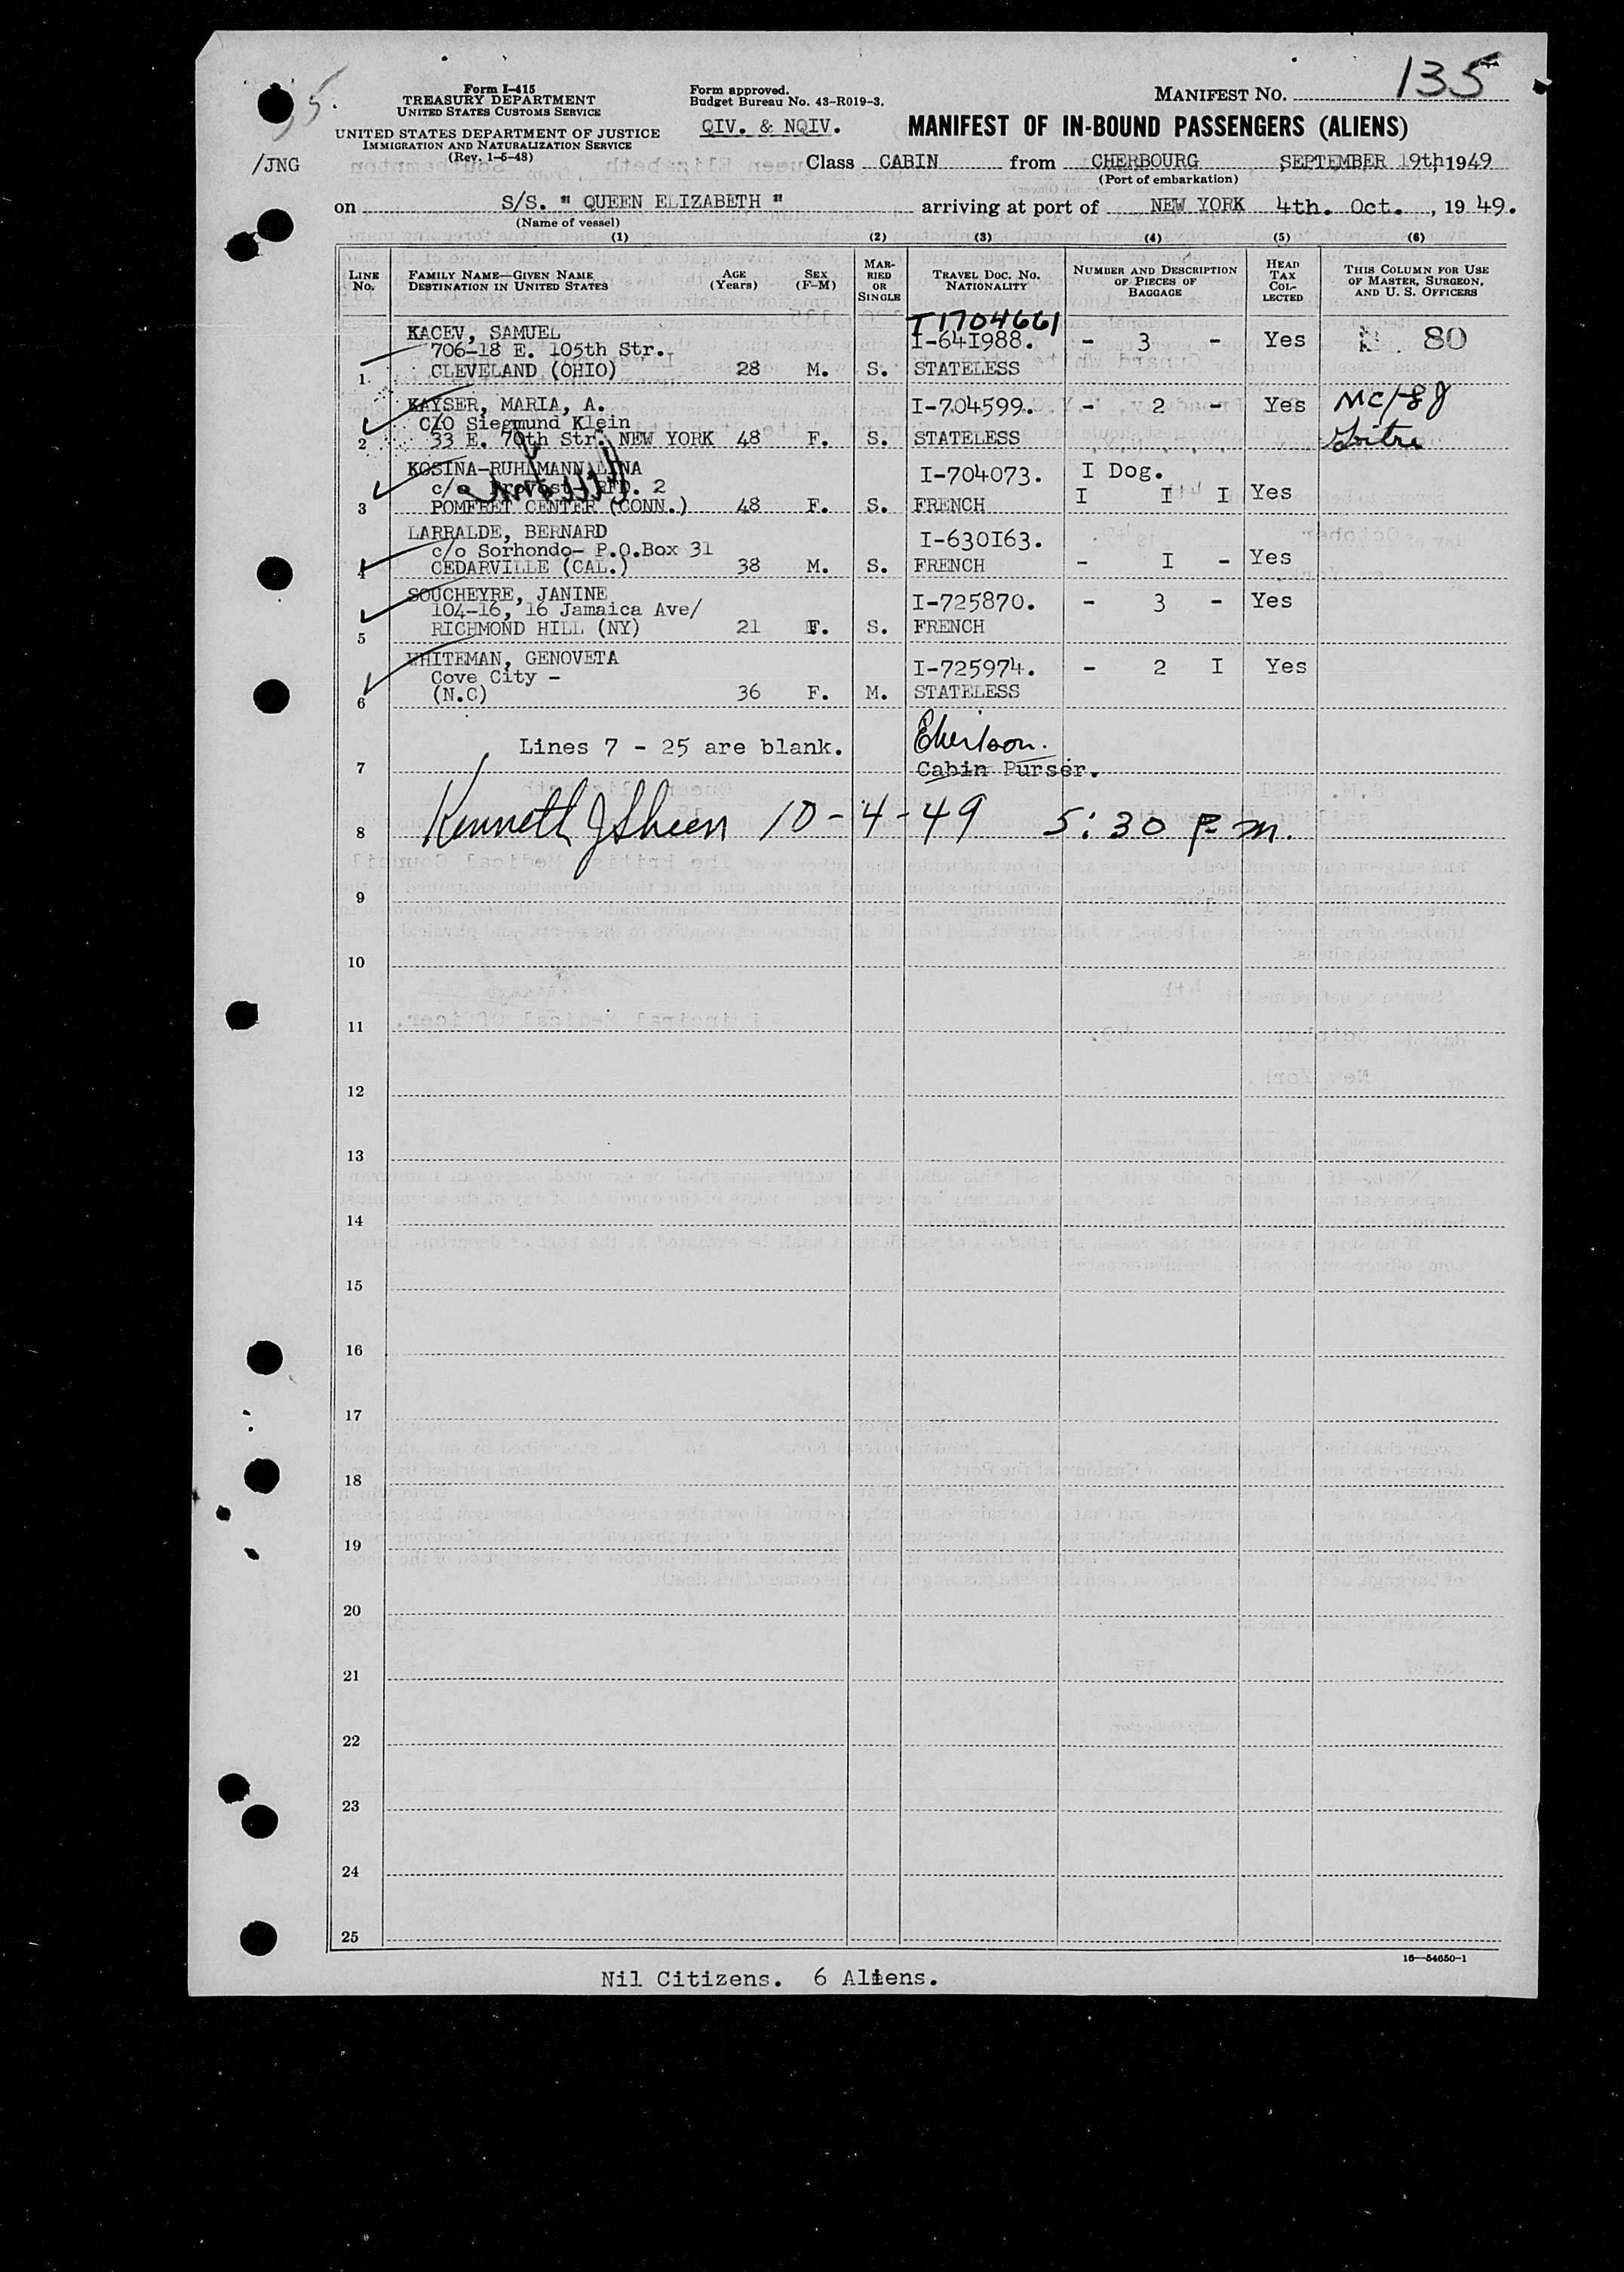 135
Form I-415
TREASURY DEPARTMENT
UNITED STATES CUSTOMS SERVICE
UNITED STATES DEPARTMENT OF JUSTICE
IMMIGRATION AND NATURALIZATION SERVICE
(Rev. 1-6-48)
/JNG
Form approved.
Budget Bureau No. 43-R019-3.
QIV. & NQIV.
MANIFEST NO.
MANIFEST OF IN-BOUND PASSENGERS (ALIENS)
Class CABIN from CHERBOURG SEPTEMBER 19th, 1949
(Port of embarkation)
on S/S. " QUEEN ELIZABETH " arriving at port of NEW YORK 4th. Oct. , 19 49.
(Name of vessel)
(1) (2) (3) (4) (5) (6)
LINE NO. FAMILY NAME—GIVEN NAME DESTINATION IN UNITED STATES AGE (YEARS) SEX (F-M) MARRIED OR SINGLE TRAVEL DOC. NO. NATIONALITY NUMBER AND DESCRIPTION OF PIECES OF BAGGAGE HEAD TAX COLLECTED THIS COLUMN FOR USE OF MASTER, SURGEON, AND U. S. OFFICERS
T1704661
KACEV, SAMUEL I-641988. - 3 - Yes 80
706-18 E. 105th Str.
1. CLEVELAND (OHIO) 28 M. S. STATELESS
KAYSER, MARIA, A. I-704599. - 2 - Yes
C/O Siegmund Klein
2 33 E. 70th Str. NEW YORK 48 F. S. STATELESS Goitre
KOSINA-RUHLMANN, I-704073. I Dog.
c/o Provost RFD. 2 I I I Yes
3 POMFRET CENTER (CONN.) 48 F. S. FRENCH
LARRALDE, BERNARD I-630I63.
c/o Sorhondo- P.O.Box 31
4 CEDARVILLE (CAL.) 38 M. S. FRENCH - I - Yes
SOUCHEYRE, JANINE I-725870. - 3 - Yes
104-16, 16 Jamaica Ave/
5 RICHMOND HILL (NY) 21 F. S. FRENCH
WHITEMAN, GENOVETA I-725974. - 2 I Yes
Cove City -
6 (N.C) 36 F. M. STATELESS
Lines 7 - 25 are blank.
7 Cabin Purser.
8 Kenneth J Sheen 10-4-49 5:30 P.m.
9
10
11
12
13
14
15
16
17
18
19
20
21
22
23
24
25
16—54650-1
Nil Citizens. 6 Aliens.